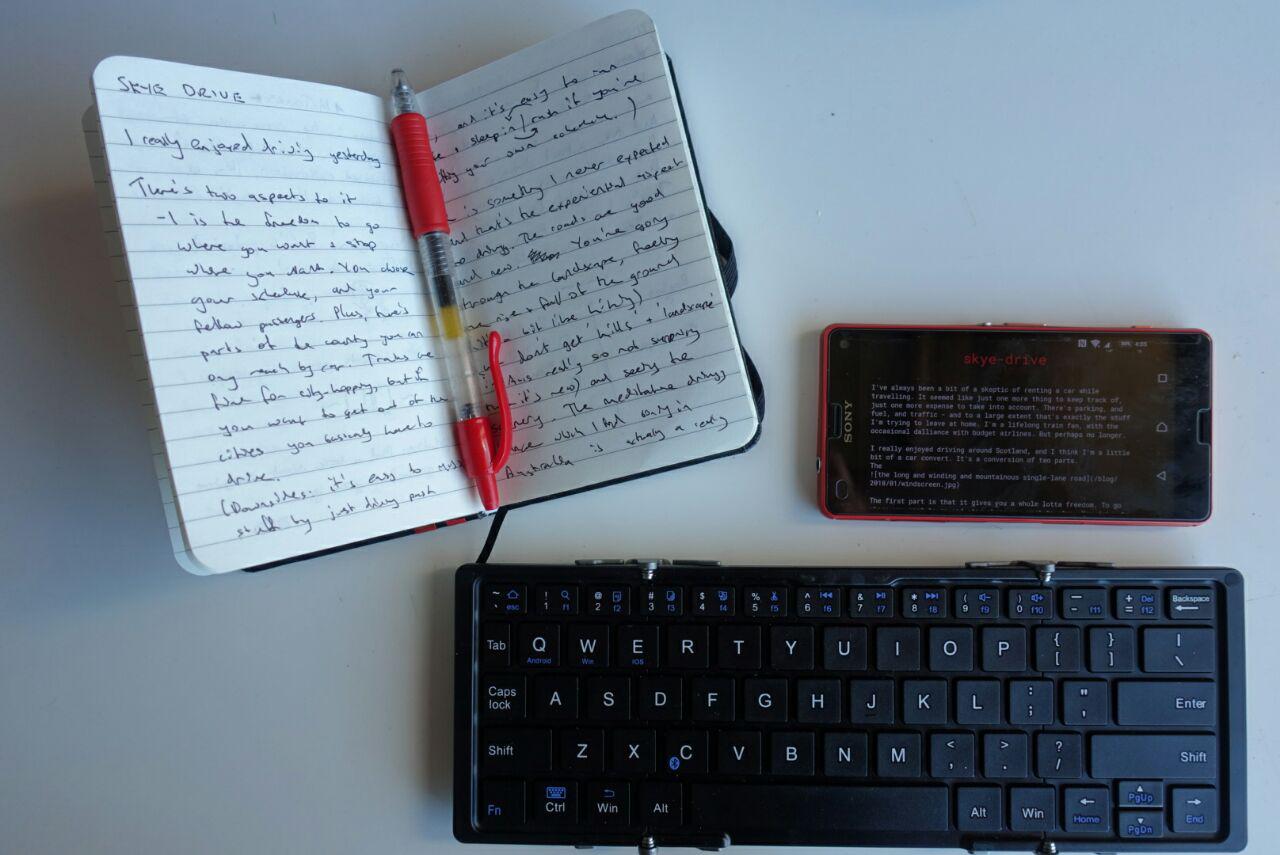 SKYE DRIVE
I really enjoyed driving yesterday
There's two aspects to it
-1 is the freedom to go
where you want & stop
where you want. You choose
your schedule, and your
fellow passengers. Plus, there's
parts of the country you can
only reach by car. Trains are
fine for city-hopping, but if
you want to get out of the
cities you basically have to
drive.
(Downsides: it's easy to miss
stuff by just driving past
, and it's easy to run
, sleep in / rush if you're
your own schedule. )
is something I never expected
and that's the experiential aspect
to driving. The roads are good
and new. You're going
through the landscape, feeling
rise & fall of the ground
a bit like hiking)
don't get 'hills' & landscape
in Aus really so not surprising
it's new) and seeing the
scenery. The meditative driving
which I find only in
Australia is actually a really
skye-drive
4:55
I've always been a bit of a skeptic of renting a car while
travelling. It seemed like just one more thing to keep track of,
just one more expense to take into account. There's parking, and
fuel, and traffic - and to a large extent that's exactly the stuff
I'm trying to leave at home. I'm a lifelong train fan, with the
occasional dalliance with budget airlines. But perhaps no longer.
I really enjoyed driving around Scotland, and I think I'm a little
bit of a car convert. It's a conversion of two parts.
The
![the long and winding and mountainous single-lane road](/blog/
2018/01/windscreen.jpg)
The first part in that it gives you a whole lotta freedom. To go
SONY
~ ` esc ! 1 f1 @ 2 f2 # 3 f3 $ 4 f4 % 5 f5 ^ 6 f6 & 7 f7 * 8 f8 ( 9 f9 ) 0 f10 - f11 + = Del f12 Backspace
Tab Q Android W Win E IOS R T Y U I O P { [ } ] | \
Caps lock A S D F G H J K L : ; " ' Enter
Shift Z X C V B N M < , > . ? / Shift
Fn Ctrl Win Alt Alt Win Home PgUp PgDn End